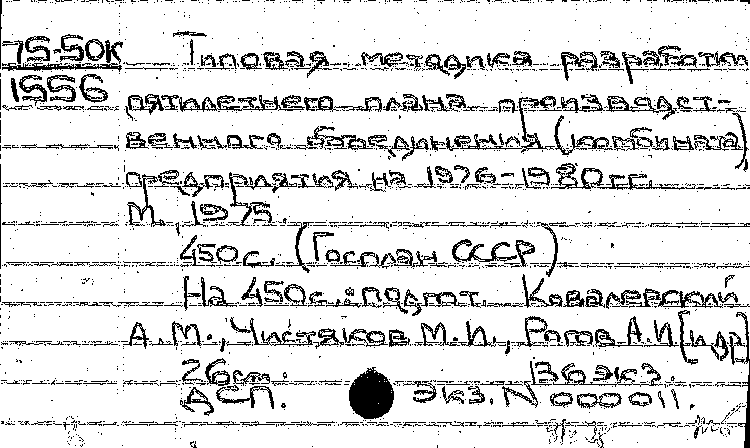 75-50К Типовая методика разработки
1556 пятилетнего плана производст-
венного объединения (комбината),
предприятия на 1976-1980гг.
М., 1975.
450с. (Госплан СССР)
На 450с.: подгот. Ковалевский
А.М., Чистяков М.И., Рогов А.И [и др]
26см. 136 экз.
ДСП. экз. N 000011.